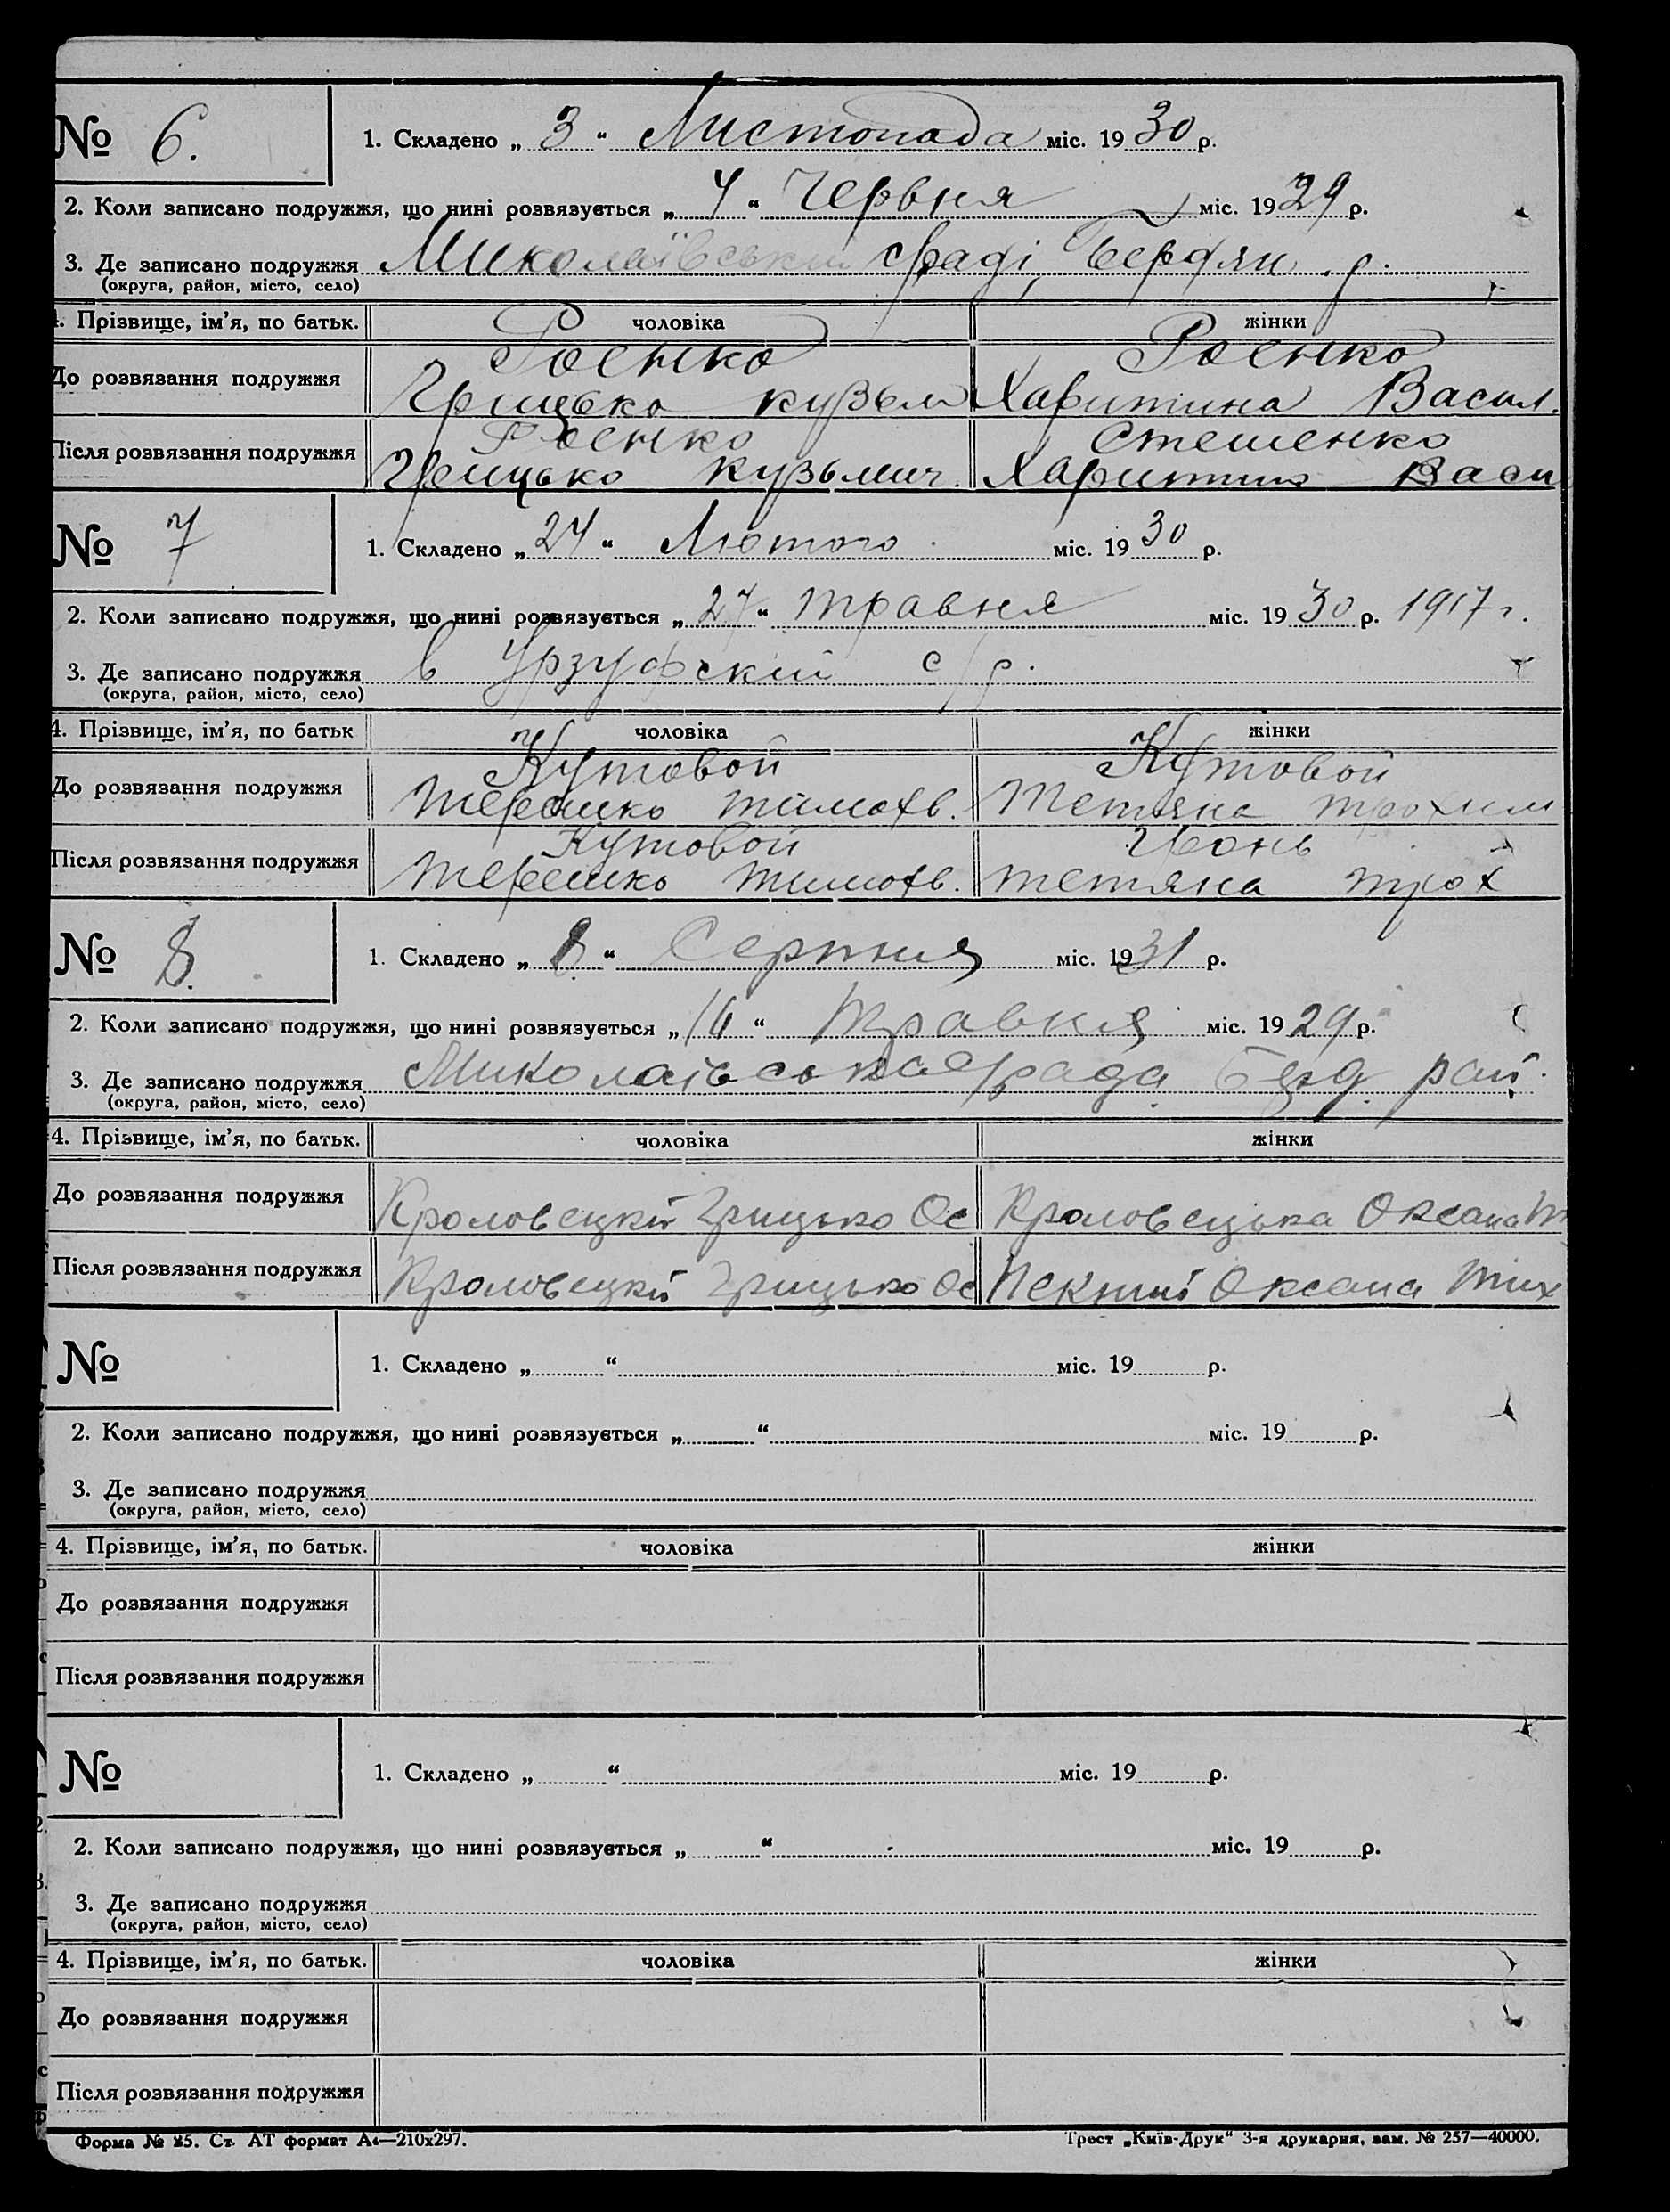 № 6. 1. Складено „ 3 “ Листопада міс. 19 30 р.
2. Коли записано подружжя, що нині розвязується „ 4 “ Червня міс. 19 29 р.
3. Де записано подружжя Миколаївській с/раді, Бердян. р.
(округа, район, місто, село)
4. Прізвище, ім’я, по батьк. чоловіка жінки
До розвязання подружжя Роенко Роенко
Грицько Кузьм Харитина Васил.
Після розвязання подружжя Роенко Стешенко
Грицько Кузьмич. Харитина Васи
№ 7 1. Складено „ 24 “ Лютого міс. 19 30 р.
2. Коли записано подружжя, що нині розвязується „ 27 “ травня міс. 19 30 р. 1917 г.
3. Де записано подружжя в Урзуфский с/р.
(округа, район, місто, село)
4. Прізвище, ім’я, по батьк чоловіка жінки
До розвязання подружжя Кутовой Кутовой
Терешко Тимофв. Тетяна Трохим
Після розвязання подружжя Кутовой
Терешко Тимофв. Тетяна Трох
№ 8. 1. Складено „ 8. “ Серпня міс. 19 31 р.
2. Коли записано подружжя, що нині розвязується „ 16 “ Травня міс. 19 29 р.
3. Де записано подружжя Миколаївська с/рада Берд. рай.
(округа, район, місто, село)
4. Прізвище, ім’я, по батьк. чоловіка жінки
До розвязання подружжя Кроловецкій Грицько Ос Кроловецька Оксана Т
Після розвязання подружжя Кроловецкій Грицько Ос Оксана Тих
№ 1. Складено „ “ міс. 19 р.
2. Коли записано подружжя, що нині розвязується „ “ міс. 19 р.
3. Де записано подружжя
(округа, район, місто, село)
4. Прізвище, ім’я, по батьк. чоловіка жінки
До розвязання подружжя
Після розвязання подружжя
№ 1. Складено „ “ міс. 19 р.
2. Коли записано подружжя, що нині розвязується „ “ міс. 19 р.
3. Де записано подружжя
(округа, район, місто, село)
4. Прізвище, ім’я, по батьк. чоловіка жінки
До розвязання подружжя
Після розвязання подружжя
Форма № 25. Ст. АТ формат А4—210х297. Трест „Київ-Друк“ 3-я друкарня, зам. № 257—40000.